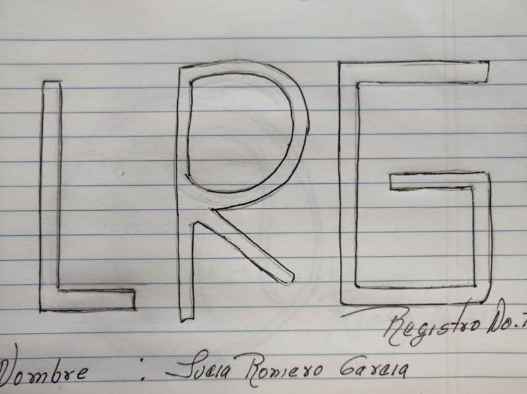 LRG
Registro No.
Nombre : Lucia Romero Garcia